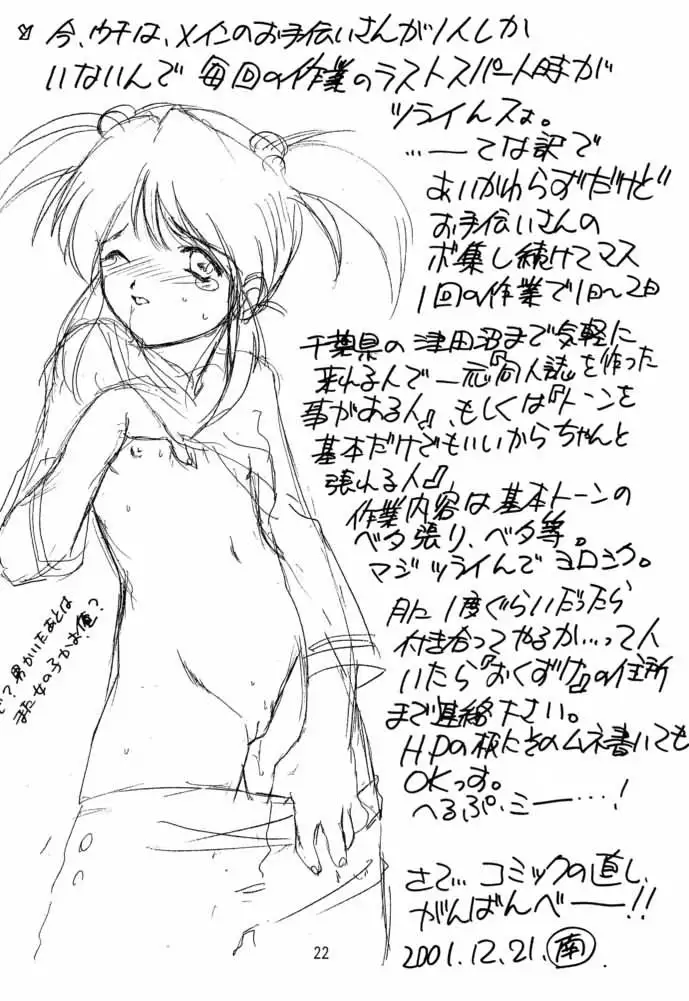 今、ウチは、メインのお手伝いさんが1人しか
いないんで毎回の作業のラストスパート時が
ツライんスよ。
…──てな訳で
あいかわらずだけど
お手伝いさんの
ボ集し続けてマス
1回の作業で1日〜2日
千葉県の津田沼まで気軽に
来れる人で一応『同人誌を作った
事がある人』、もしくは『トーンを
基本だけでもいいからちゃんと
張れる人』。
作業内容は基本トーンの
ベタ張り、ベタ等。
マジツライんでヨロシク。
月に1度ぐらいだったら
付き合ってやるか…って人
いたら『おくずけ』の住所
まで連絡下さい。
HPの板にそのムネ書いても
OKっす。
へるぷ、ミー──…!
さて… コミックの直し、
がんばんべ──!!
2001.12.21. 南
で?男かいたあとは
また女の子かよ俺?
22